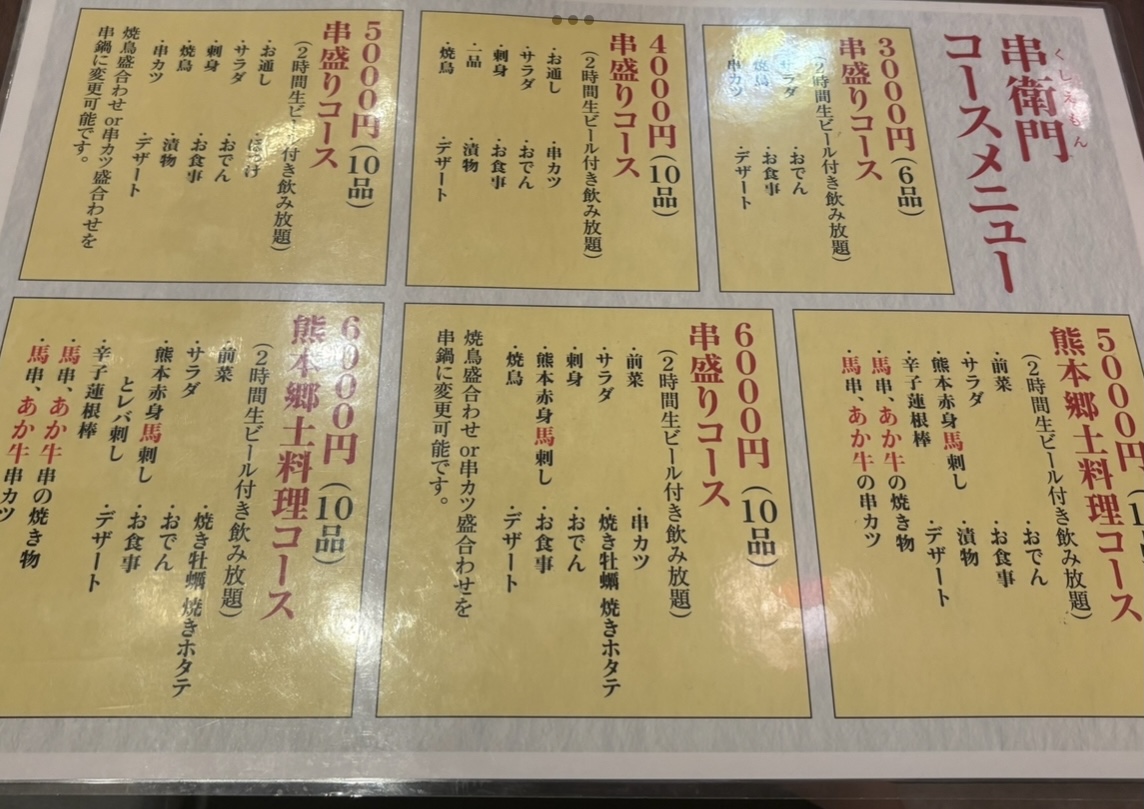 くしえもん
串衛門
コースメニュー
3000円(6品)
串盛りコース
(2時間生ビール付き飲み放題)
・サラダ
・焼鳥
・串カツ
・おでん
・お食事
・デザート
4000円(10品)
串盛りコース
(2時間生ビール付き飲み放題)
・お通し
・サラダ
・刺身
・一品
・焼鳥
・串カツ
・おでん
・お食事
・漬物
・デザート
5000円(10品)
串盛りコース
(2時間生ビール付き飲み放題)
・お通し
・サラダ
・刺身
・焼鳥
・串カツ
・ほっけ
・おでん
・お食事
・漬物
・デザート
焼鳥盛合わせ or 串カツ盛合わせを
串鍋に変更可能です。
5000円
熊本郷土料理コース
(2時間生ビール付き飲み放題)
・前菜
・サラダ
・熊本赤身馬刺し
・辛子蓮根棒
・馬串、あか牛の焼き物
・馬串、あか牛の串カツ
・おでん
・お食事
・漬物
・デザート
6000円(10品)
串盛りコース
(2時間生ビール付き飲み放題)
・前菜
・サラダ
・刺身
・熊本赤身馬刺し
・焼鳥
・串カツ
・焼き牡蠣 焼きホタテ
・おでん
・お食事
・デザート
焼鳥盛合わせ or 串カツ盛合わせを
串鍋に変更可能です。
6000円(10品)
熊本郷土料理コース
(2時間生ビール付き飲み放題)
・前菜
・サラダ
・熊本赤身馬刺し
とレバ刺し
・辛子蓮根棒
・馬串、あか牛串の焼き物
・馬串、あか牛串カツ
・焼き牡蠣 焼きホタテ
・おでん
・お食事
・デザート